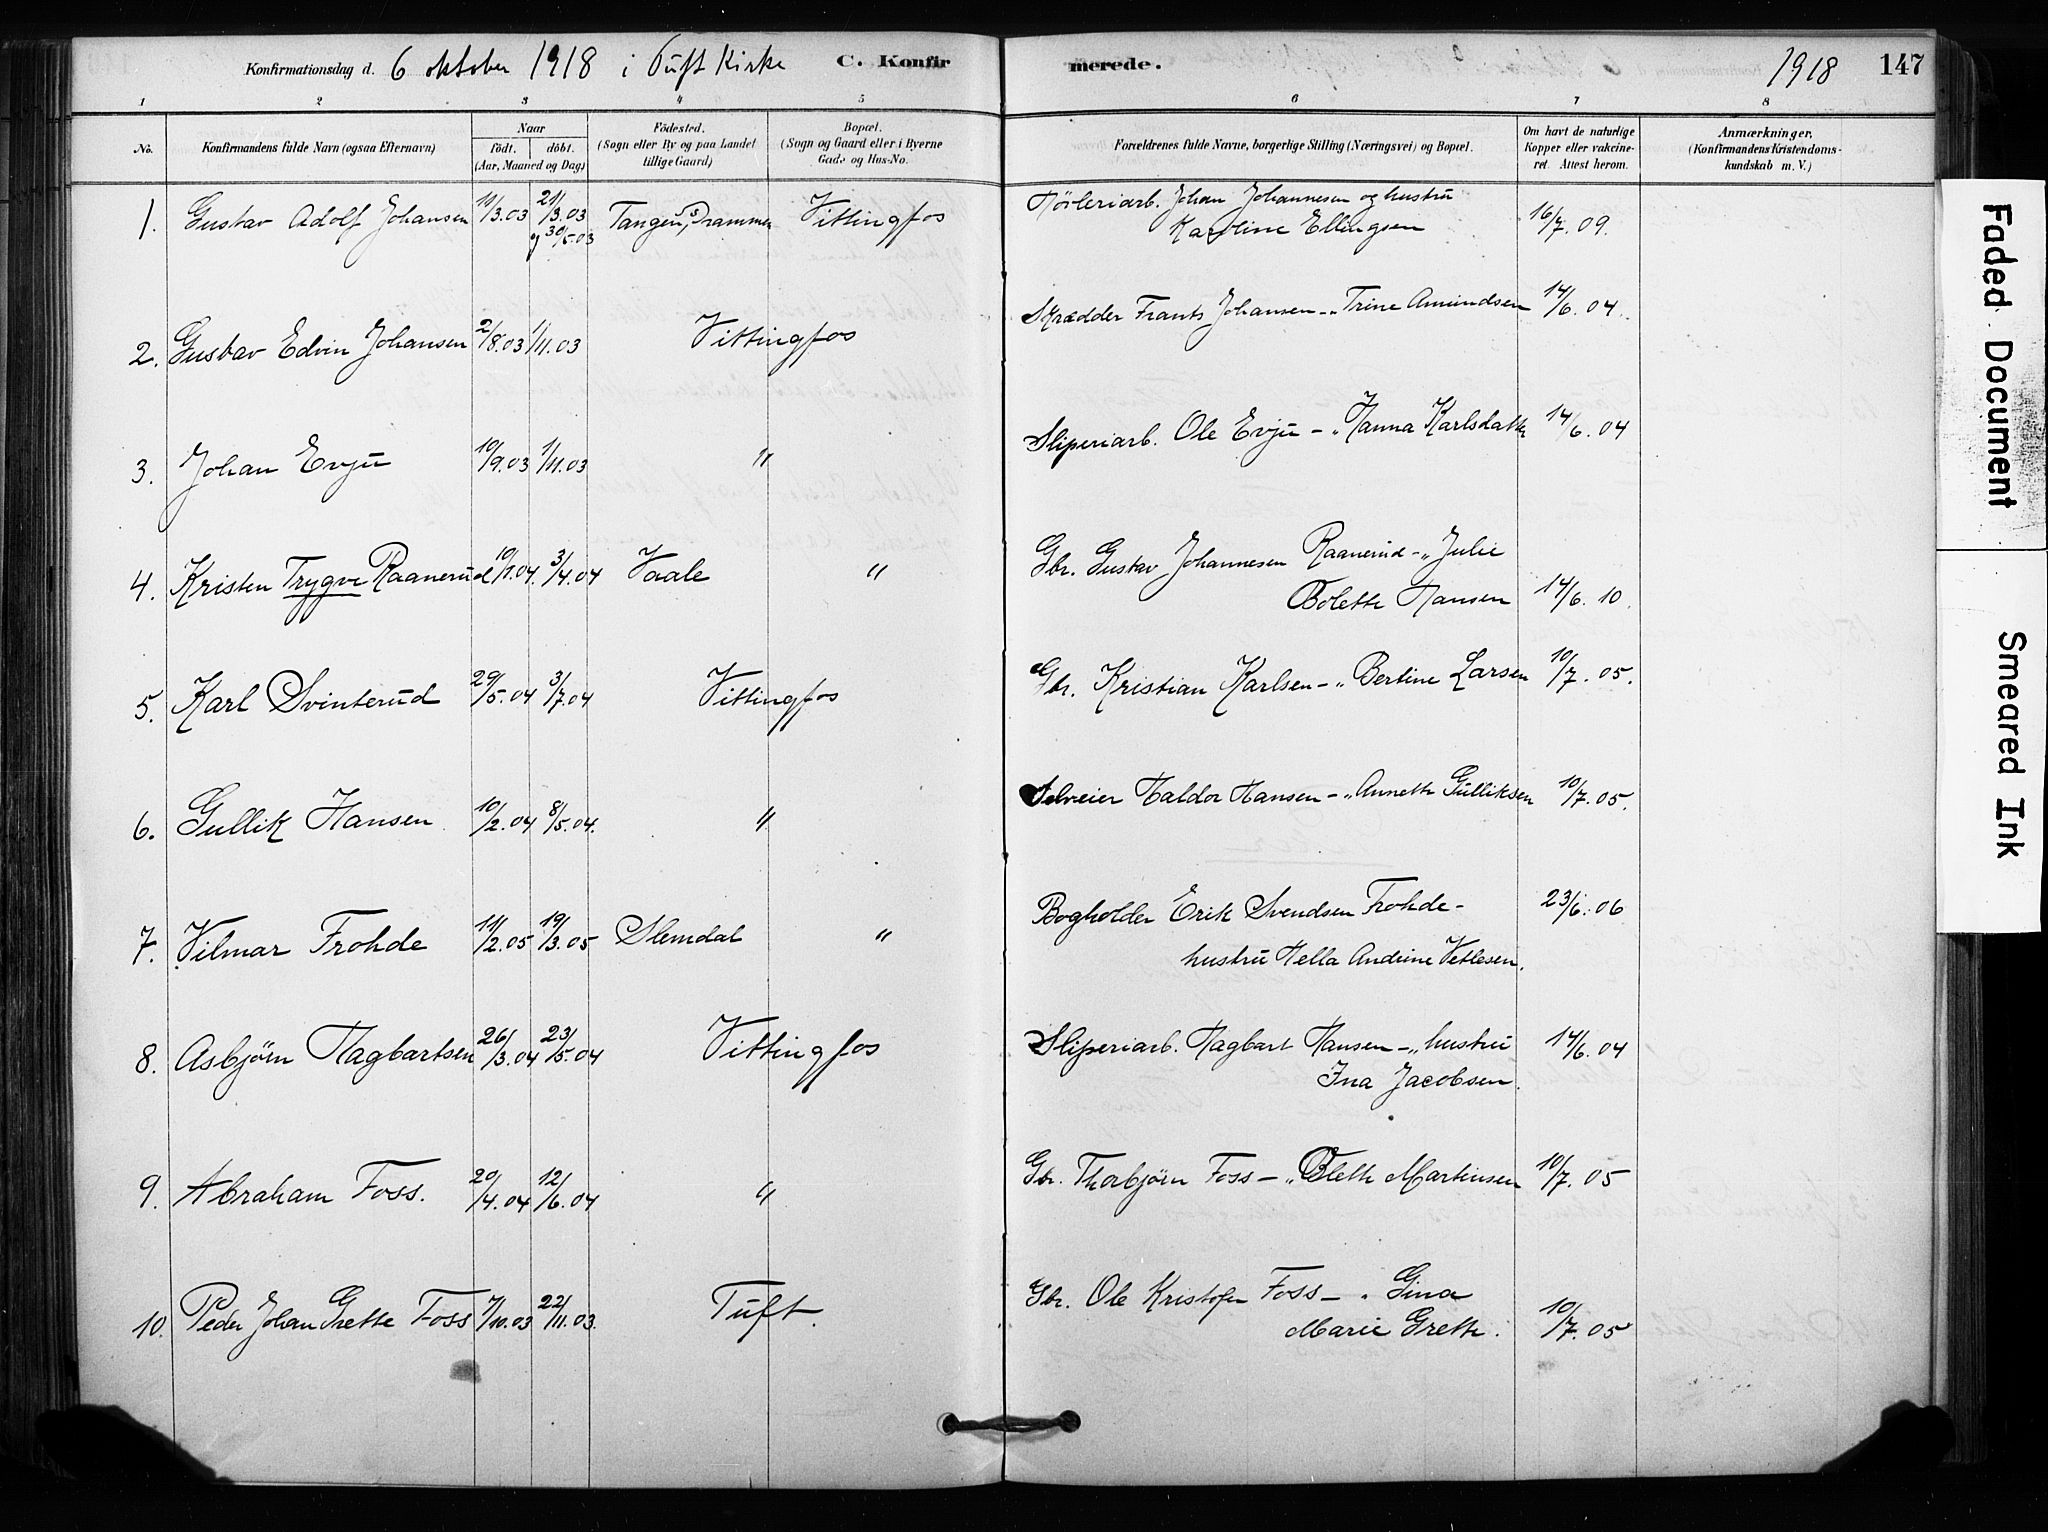 Konfirmationsdag d. 6 oktober 1918 i Tuft Kirke C. Konfirmerede. 1918 147
1 2 3 4 5 6 7 8
No. Konfirmandens fulde Navn (ogsaa Efternavn) Naar Födt. döbt. (Aar, Maaned og Dag) Födested. (Sogn eller By og paa Landet tillige Gaard) Bopæl. (Sogn og Gaard eller i Byerne Gade og Hus-No. Forældrenes fulde Navne, borgerlige Stilling (Næringsvei) og Bopæl. Om havt de naturlige Kopper eller vakcineret. Attest herom. Anmærkninger, (Konfirmandens Kristendomskundskab m. V.)
1. Gustav Adolf Johansen 11/3.03 21/3.03 og 30/5.03 Tangen, Drammen Vittingfos Johan Johannesen og hustru
Karoline Ellingsen 16/7.09.
2. Gustav Edvin Johansen 2/8.03 1/11.03 Vittingfos Skrædder Frants Johansen -„ Trine Amundsen 14/6.04.
3. Johan Evju 10/9.03 1/11.03 „ Sliperiarb. Ole Evju -„ Hanna Karlsdatter 14/6.04
4. Kristen Trygve Raanerud 10/1.04. 3/4.04 Vaale „ Gbr. Gustav Johannesen Raanerud -„ Julie
Bolette Hansen 14/6.10.
5. Karl Svinterud 29/5.04 3/7.04 Vittingfos Gbr. Kristian Karlsen -„ Bertine Larsen 10/7.05.
6. Gullik Hansen 10/2.04 8/5.04. „ Selveier Haldor Hansen -„ Annette Gulliksen 10/7.05.
7. Vilmar Frohde 11/2.05 19/3.05 Slemdal „ Bogholder Erik Svendsen Frohde -
hustru Hella Andrine Vetlesen. 23/6.06
8. Asbjørn Hagbartsen 26/3.04 23/5.04 Vittingfos Sliperiarb. Hagbart Hansen -„ hustru
Ina Jacobsen. 14/6.04
9. Abraham Foss. 20/4.04 12/6.04 „ Gbr. Thorbjørn Foss -„ Martinsen 10/7.05
10. Peder Johan Grette Foss 7/10.03 22/11.03. Tuft. Gbr. Ole Kristofer Foss -„ Gina
Marie Grette. 10/7.05
Faded Document
Smeared Ink